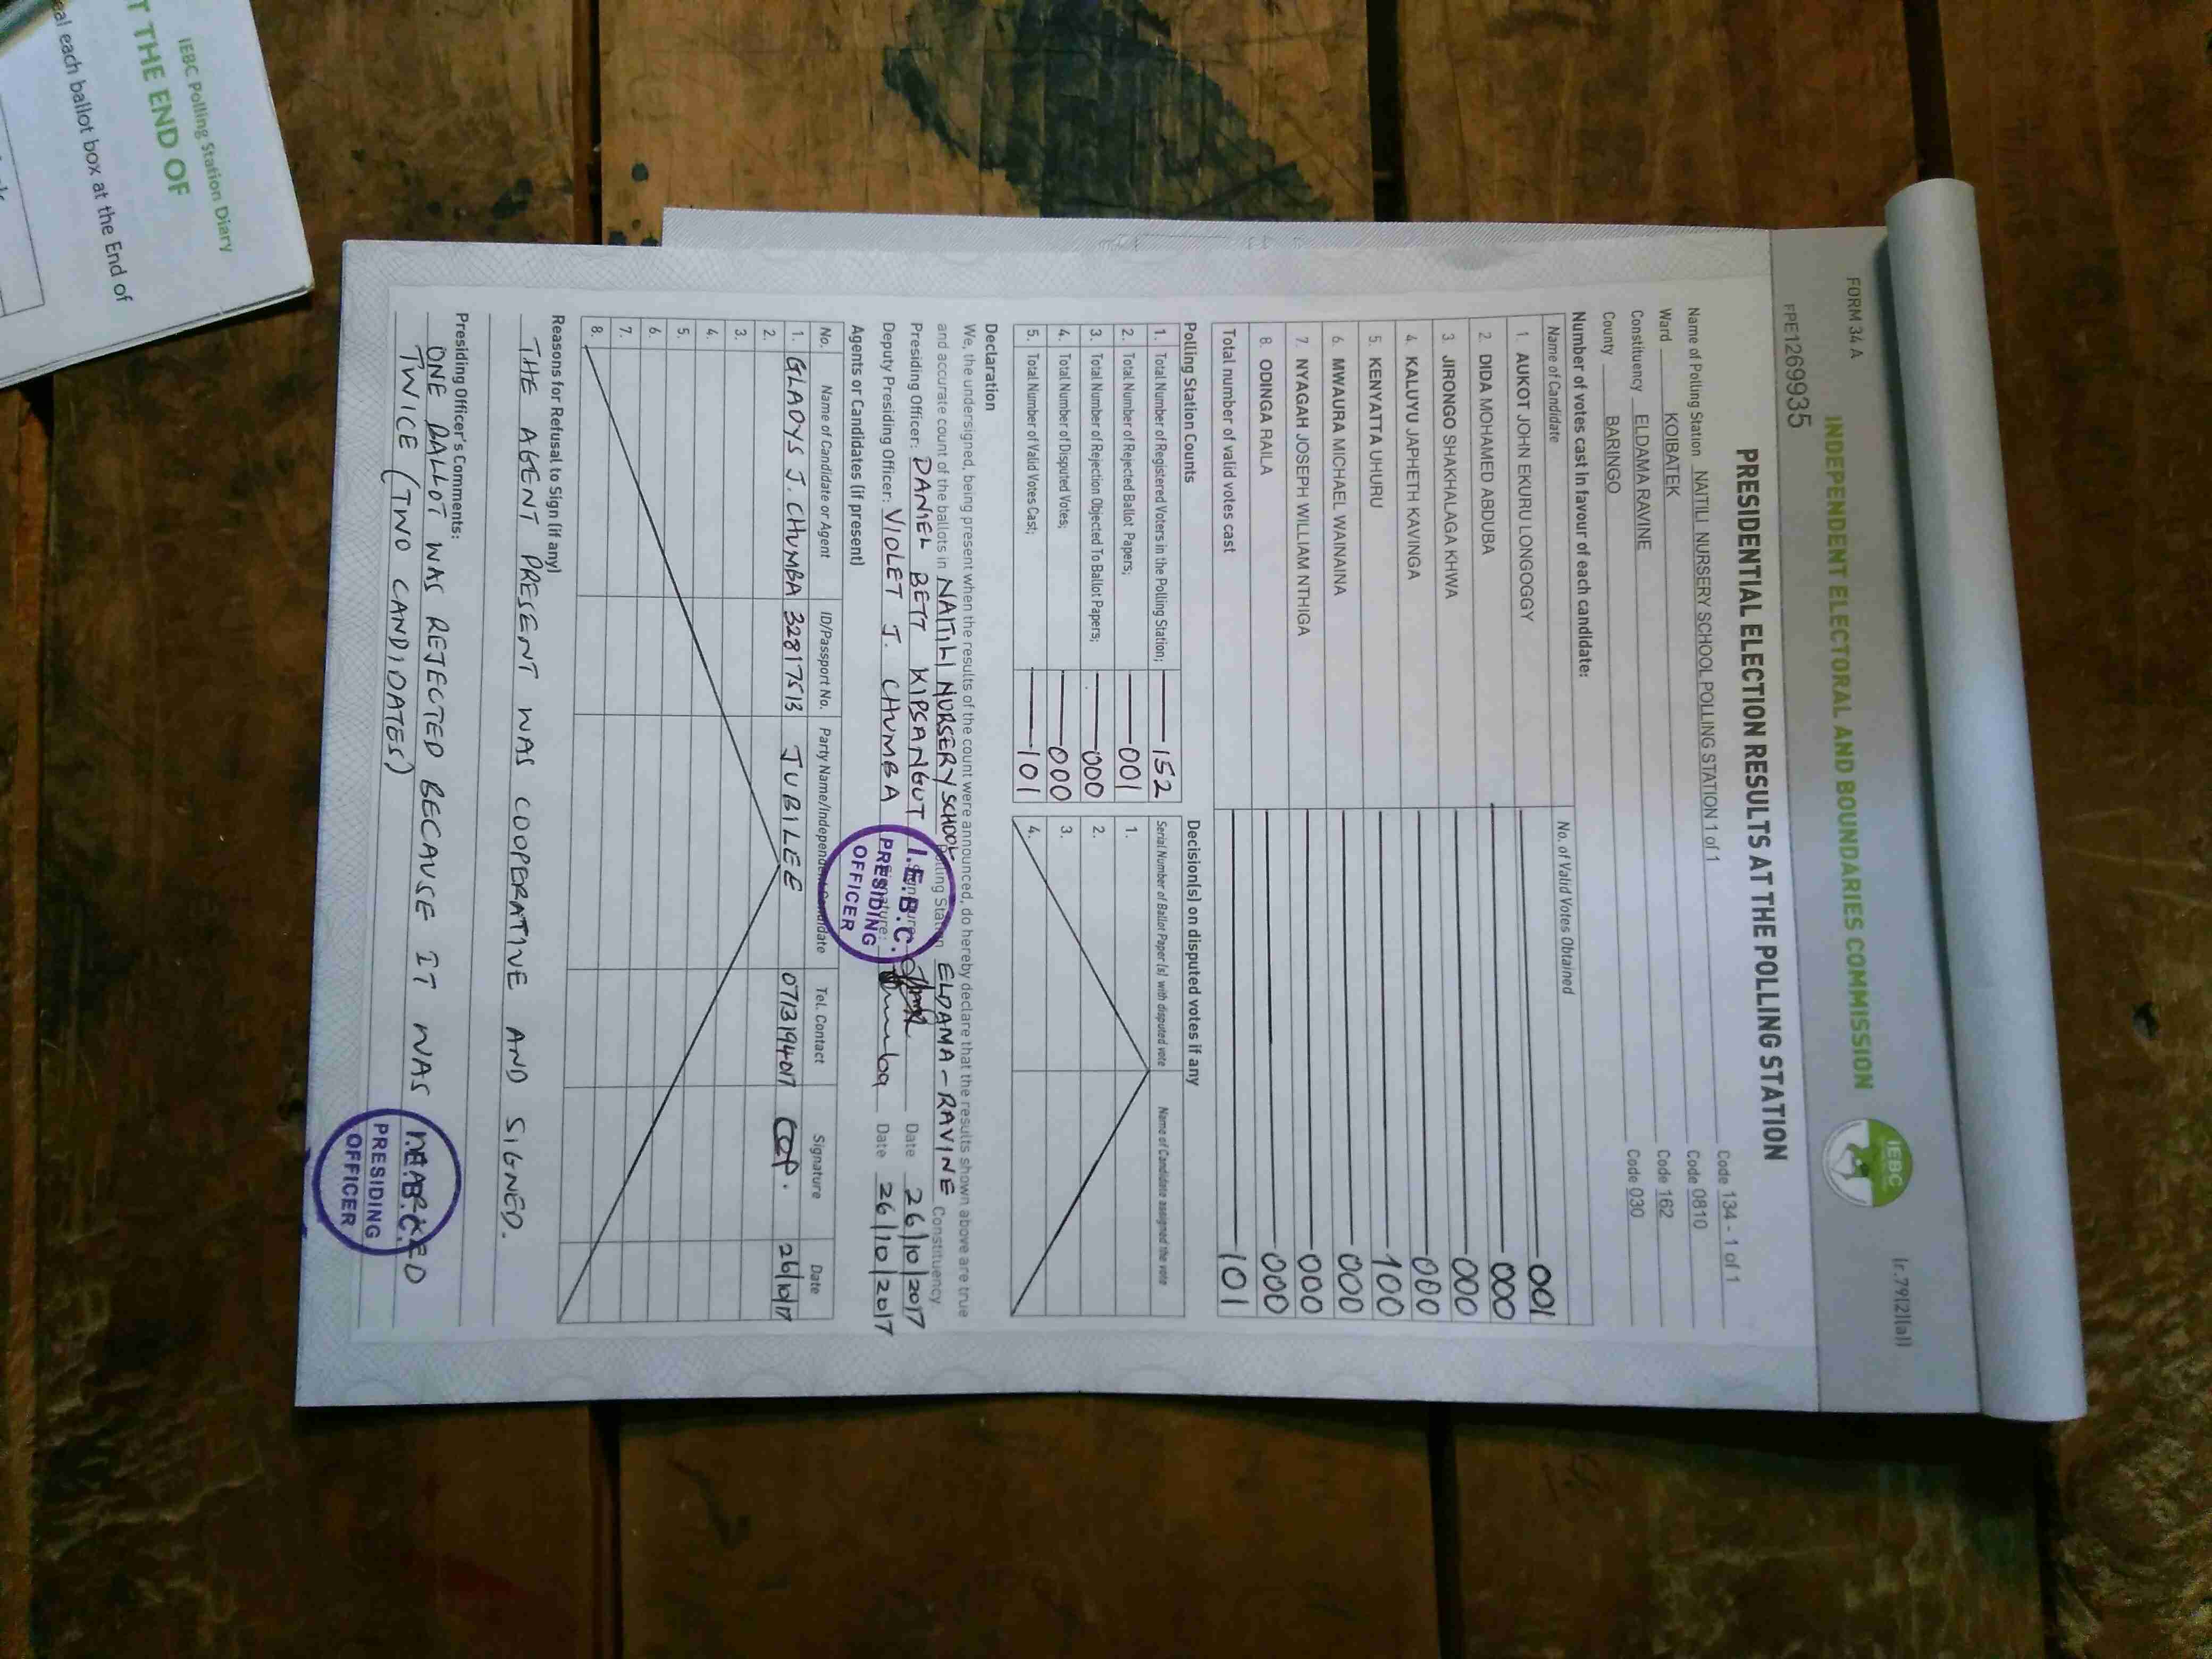 FORM 34 A
(r.79(2)(a))
FPE1269935
INDEPENDENT ELECTORAL AND BOUNDARIES COMMISSION
IEBC
PRESIDENTIAL ELECTION RESULTS AT THE POLLING STATION
Name of Polling Station NAITILI NURSERY SCHOOL POLLING STATION 1 of 1 Code 134 - 1 of 1
Ward KOIBATEK Code 0810
Constituency ELDAMA RAVINE Code 162
County BARINGO Code 030
Number of votes cast in favour of each candidate:
Name of Candidate No. of Valid Votes Obtained
1. AUKOT JOHN EKURU LONGOGGY 001
2. DIDA MOHAMED ABDUBA 000
3. JIRONGO SHAKHALAGA KHWA 000
4. KALUYU JAPHETH KAVINGA 000
5. KENYATTA UHURU 100
6. MWAURA MICHAEL WAINAINA 000
7. NYAGAH JOSEPH WILLIAM NTHIGA 000
8. ODINGA RAILA 000
Total number of valid votes cast 101
Polling Station Counts
1. Total Number of Registered Voters in the Polling Station; 152
2. Total Number of Rejected Ballot Papers; 001
3. Total Number of Rejection Objected To Ballot Papers; 000
4. Total Number of Disputed Votes; 000
5. Total Number of Valid Votes Cast; 101
Decision(s) on disputed votes if any
Serial Number of Ballot Paper (s) with disputed vote Name of Candidate assigned the vote
1.
2.
3.
4.
Declaration
We, the undersigned, being present when the results of the count were announced, do hereby declare that the results shown above are true
and accurate count of the ballots in NAITILI NURSERY SCHOOL Polling Station ELDAMA-RAVINE Constituency
Presiding Officer: DANIEL BETT KIPSANGUT Signature: Date 26/10/2017
Deputy Presiding Officer: VIOLET J. CHUMBA Signature: Date 26/10/2017
I.E.B.C.
PRESIDING
OFFICER
Agents or Candidates (if present)
No. Name of Candidate or Agent ID/Passport No. Party Name/Independent Candidate Tel. Contact Signature Date
1. GLADYS J. CHUMBA 32817513 JUBILEE 0713194017 26/10/17
2.
3.
4.
5.
6.
7.
8.
Reasons for Refusal to Sign (if any)
THE AGENT PRESENT WAS COOPERATIVE AND SIGNED.
Presiding Officer's Comments:
ONE BALLOT WAS REJECTED BECAUSE IT WAS MARKED
TWICE (TWO CANDIDATES)
I.E.B.C.
PRESIDING
OFFICER
IEBC Polling Station Diary
T THE END OF
al each ballot box at the End of